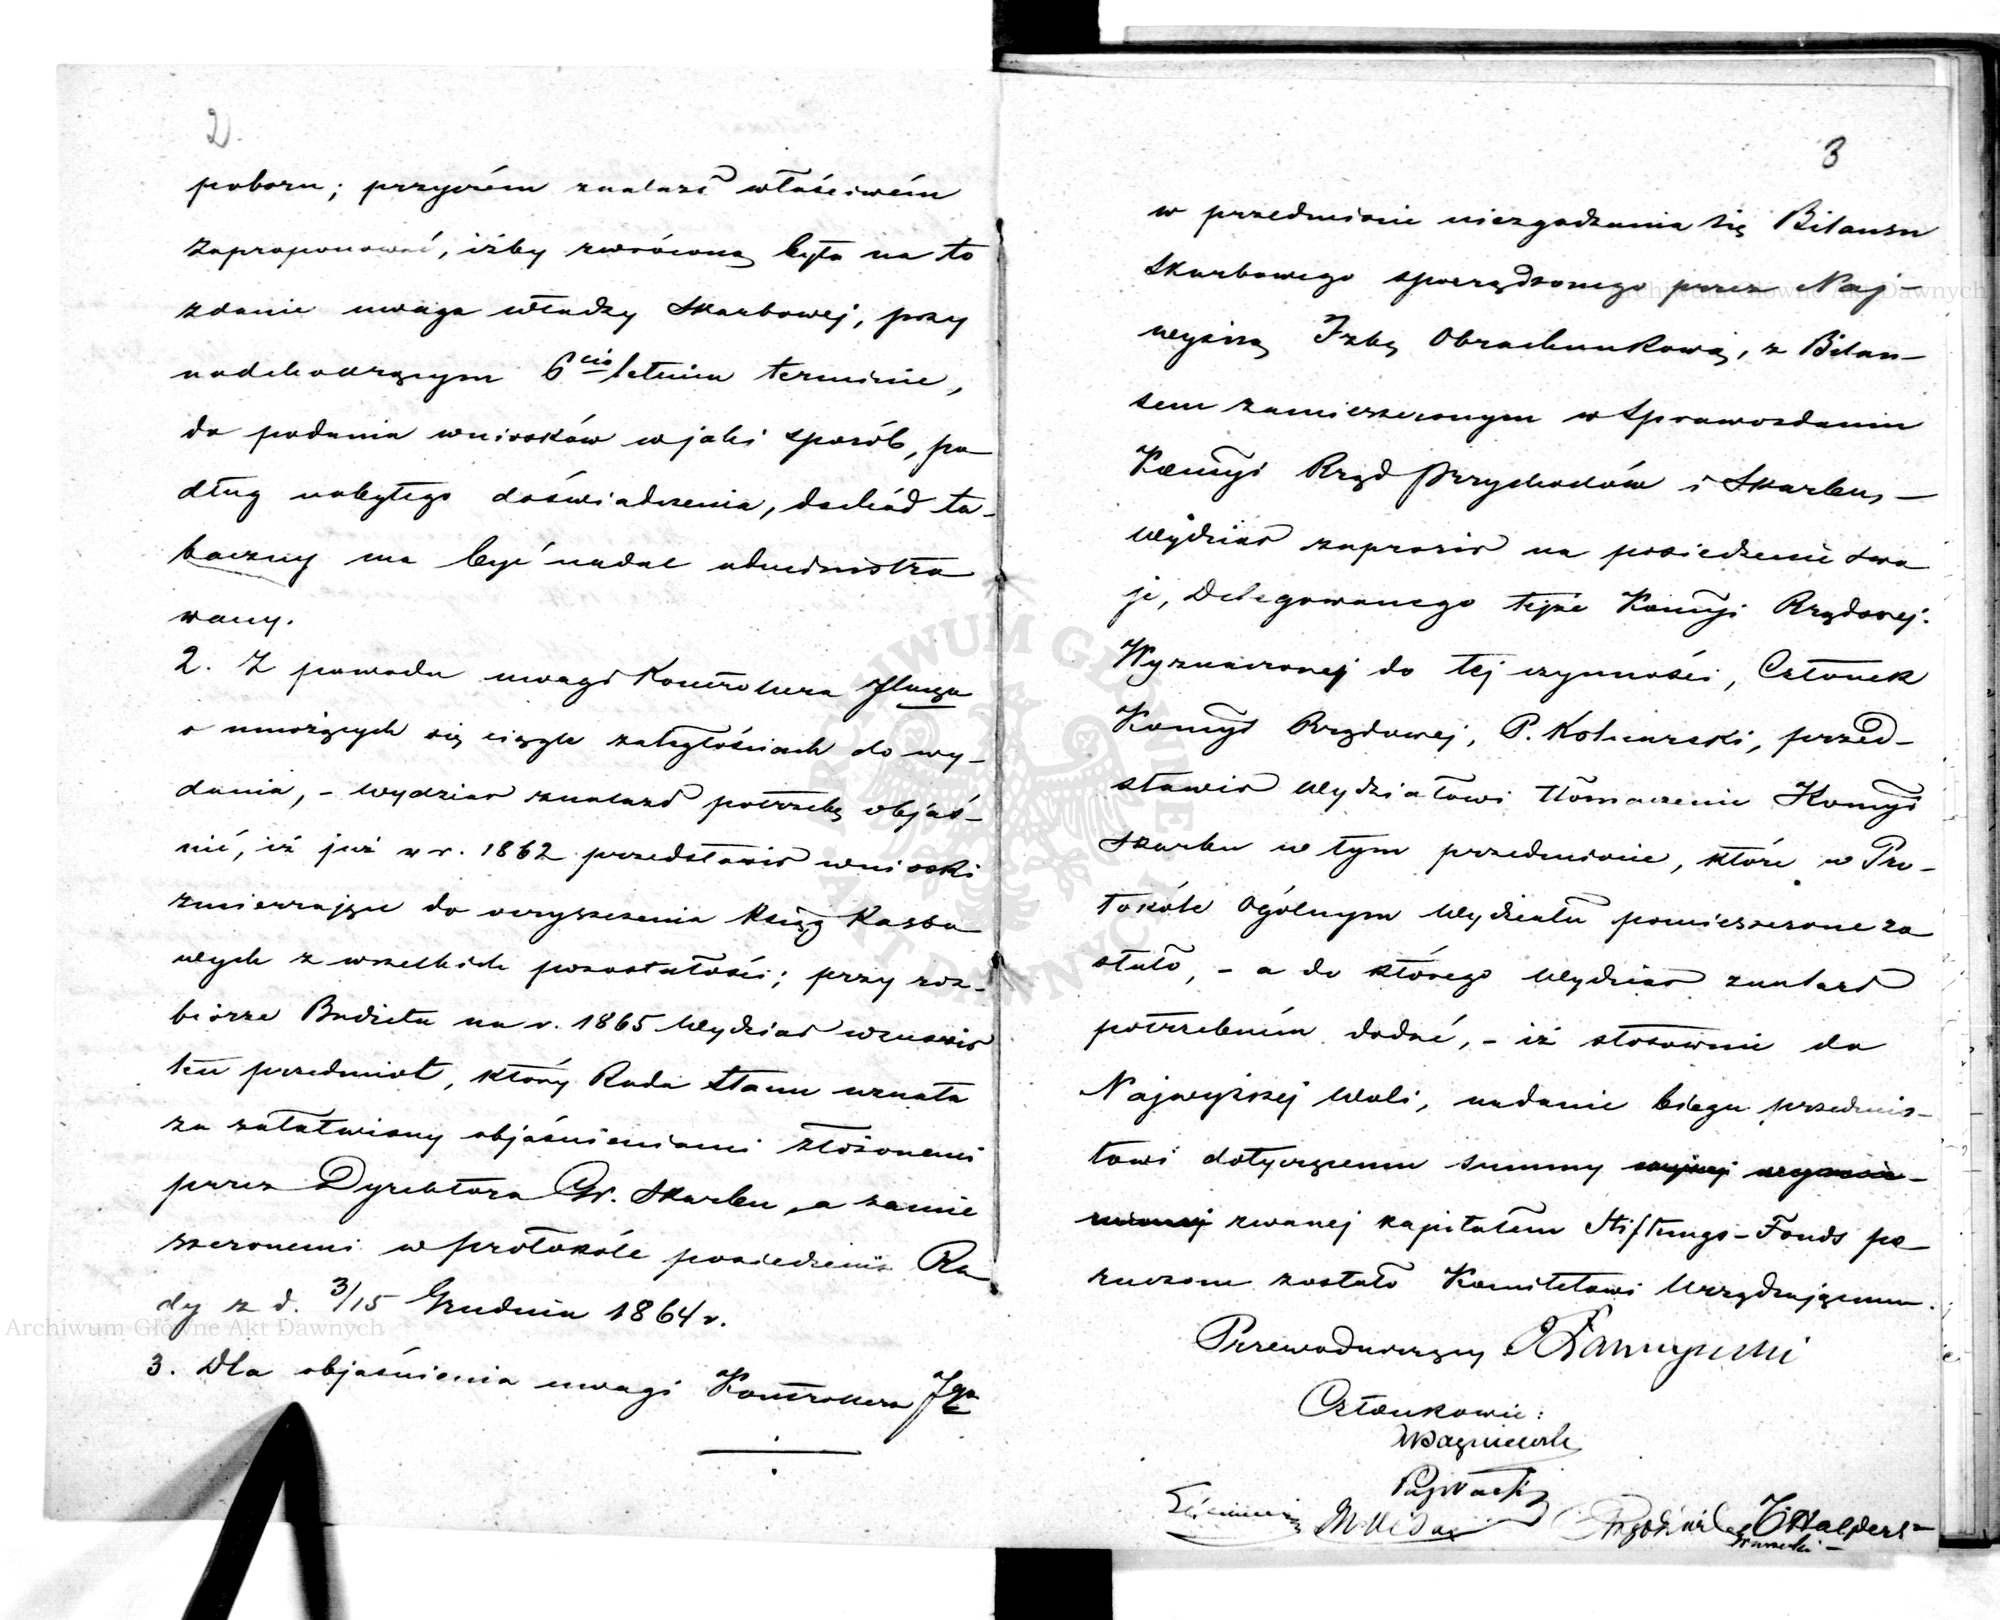 2
poboru; przyczém znalazł właściwém
zaproponować, iżby zwróconą była na to
zdanie uwaga władzy Skarbowej, przy
nadchodzącym 6cio letnim terminie,
do podania wniosków w jaki sposób, po
dług nabytego doświadczenia, dochód ta-
baczny ma być nadal administro
wany.
2. Z powodu uwagi Kontrollera Jlnego
o mnożących się ciągle zaległościach do wy-
dania, - Wydział znalazł potrzebę objaś-
nić, iż już w r. 1862 przedstawił wnioski
zmierzające do oczyszczenia Ksiąg Kasso
wych z wszelkich pozostałości; przy roz-
biorze Budżetu na r. 1865 Wydział wznowił
ten przedmiot, który Rada Stanu uznała
za załatwiony objaśnieniami złożonemi
przez Dyrektora Gł. Skarbu, a zamie
szczonemi w protokóle posiedzenia Ra
dy z d. 3/15 Grudnia 1864 r.
3. Dla objaśnienia uwagi Kontrollera Jgo
3
w przedmiocie niezgadzania się Bilansu
Skarbowego sporządzonego przez Naj-
wyższą Izbę Obrachunkową, z Bilan-
sem zamieszczonym w Sprawozdaniu
Kommyi Rząd Przychodów i Skarbu, -
Wydział zaprosił na posiedzenie swo
je, Delegowanego tejże Kommyi Rządowej.
Wyznaczony do tej czynności, Członek
Kommyi Rządowej, P. Kolnarski, przed-
stawił Wydziałowi tłómaczenie Kommyi
Skarbu w tym przedmiocie, które w Pro-
tokóle Ogólnym Wydziału pomieszczone zo
stało, - a do którego Wydział znalazł
potrzebném dodać, - iż stosownie do
Najwyższej Woli, nadanie biegu przedmio-
towi dotyczącemu summy
zwanej kapitałem Stiftungs-Fonds po
ruczone zostało Komitetowi Urządzającemu.
Przewodniczący
Członkowie:
Halpert